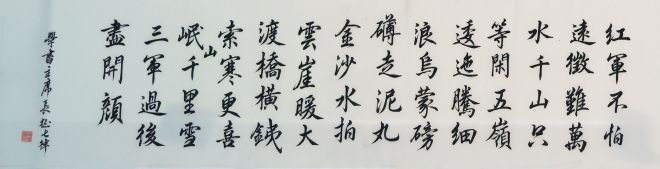 紅軍不怕
遠徵難萬
水千山只
等閑五嶺
逶迤騰細
浪烏蒙磅
礴走泥丸
金沙水拍
雲崖暖大
渡橋橫銕
索寒更喜
岷山千里雪
三軍過後
盡開顏
學書主席長征七律